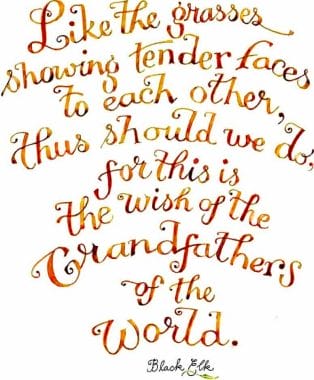 Like the grasses
showing tender faces
to each other,
thus should we do,
for this is
the wish of the
Grandfathers
of the
World.
Black Elk